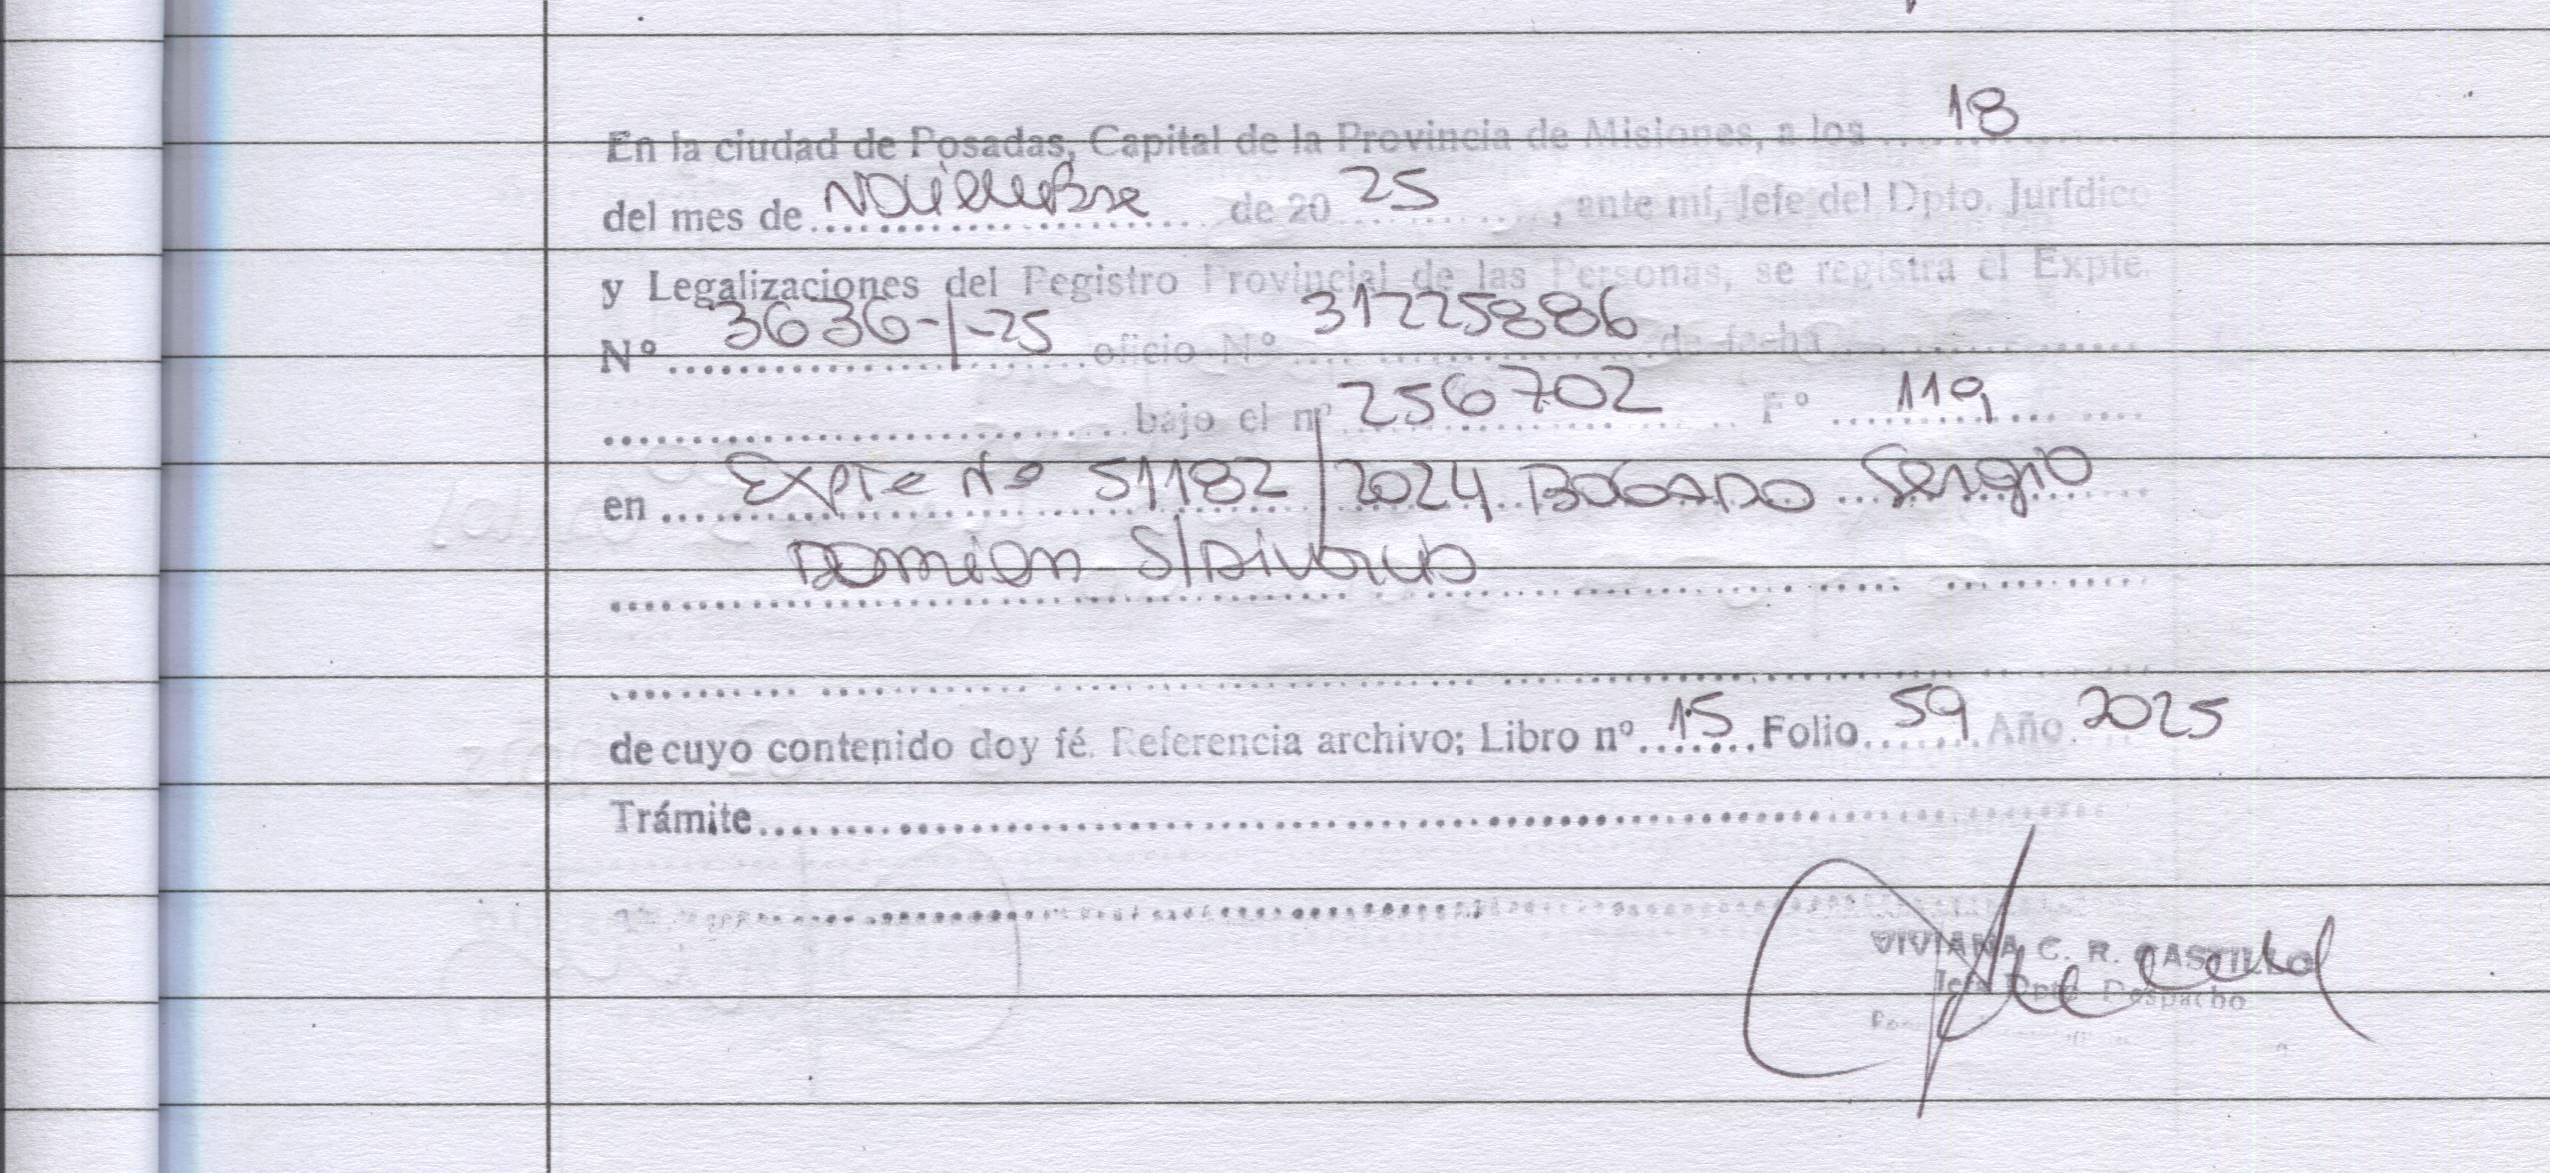 En la ciudad de Posadas, Capital de la Provincia de Misiones, a los 18
del mes de Noviembre de 20 25, ante mí, Jefe del Dpto. Jurídico
y Legalizaciones del Registro Provincial de las Personas, se registra el Expte.
Nº 3636-I-25 oficio Nº 31225886 de fecha
bajo el nº 256702 Fº 119
en Expte Nº 51182/2024 BOGADO Sergio
Damián S/Divorcio
de cuyo contenido doy fé. Referencia archivo; Libro nº 15 Folio 59 Año 2025
Trámite
VIVIANA C. R. CASTILLO
Jefe Dpto. Despacho